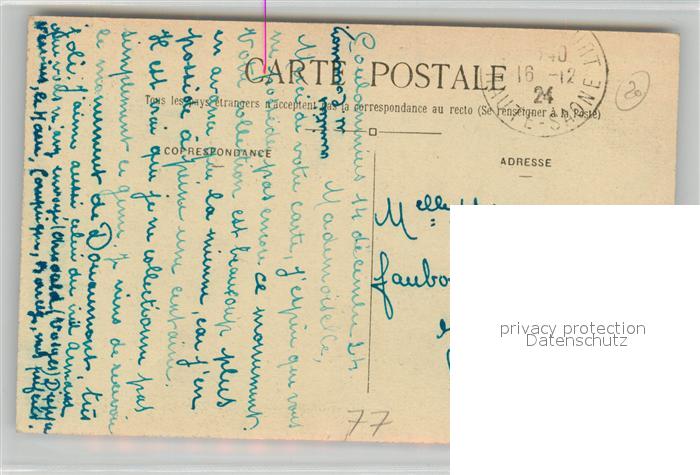 CARTE POSTALE
Tous les pays étrangers n'acceptent pas la correspondance au recto (Se renseigner à la Poste)
CORRESPONDANCE
ADRESSE
16 -12
24
HAUTE-SAONE
20
Coulommiers 14 décembre 24
Mademoiselle,
Merci de votre carte, j'espère que vous
ne possédez pas encore ce monument.
Votre collection est beaucoup plus
en avance que la mienne, car j'en
possède à peine une centaine.
Il est vrai que je ne collectionne pas
simplement ce genre. Je viens de recevoir
le monument de Douaumont, très
joli. J'aime aussi celui du
Melle
Faubo
77
privacy protection
Datenschutz